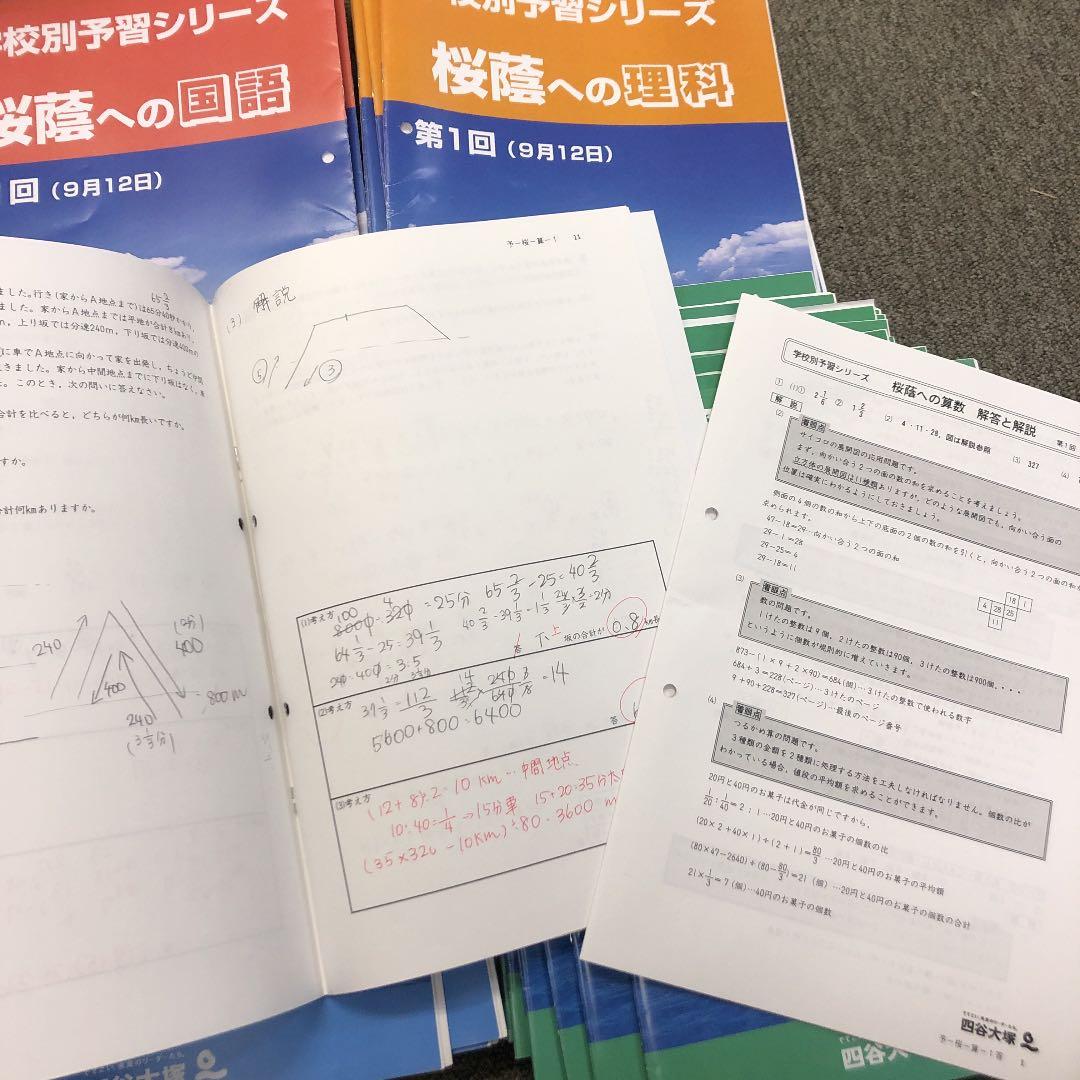 学校別予習シリーズ
桜蔭への国語
回(9月12日)
校別予習シリーズ
桜蔭への理科
第1回(9月12日)
ました。行き(家からA地点まで)は65分40秒かかり、
65 2/3
ました。家からA地点までは平地が合計8kmあり、
m,上り坂では分速240m,下り坂では分速400mの
に車でA地点に向かって家を出発し,ちょうど中間
きました。家から中間地点までに下り坂はなく,
このとき,次の問いに答えなさい。
合計を比べると,どちらが何km長いですか。
すか。
合計何kmありますか。
240
400
(2分)
400
800m
240
(3 1/3分)
予-桜-算-1 11
(3) 解説
⑤
③
(1)考え方
8000÷320=25分
65 2/3-25=40 2/3
64 1/3-25=39 1/3
240:400=3:5
答 下上 坂の合計が 0.8 km長い
(2)考え方
39 1/3=112/3
=14
5600+800=6400
答
(3)考え方
(12+8)÷2=10km…中間地点
10÷40=1/4⇒15分車 15+20=35分
(35×320-10km)÷80=3600m
学校別予習シリーズ 桜蔭への算数 解答と解説 第1回
① (1)① 2 1/6 ② 1 2/3 (2) 4・11・28,図は解説参照 (3) 327 (4)
解説
(2) 着眼点
サイコロの展開図の応用問題です。
まず,向かい合う2つの面の数の和を求めることを考えましょう。
立方体の展開図は11種類ありますが,どのような展開図でも,向かい合う面の
位置は確実にわかるようにしておきましょう。
側面の4個の数の和から上下の底面の2個の数の和を引くと,向かい合う2つの面の和が
求められます。
47-18=29…向かい合う2つの面の和
29-1=28
29-25=4
29-18=11
18 1
4 28 25
11
(3) 着眼点
数の問題です。
1けたの整数は9個,2けたの整数は90個,3けたの整数は900個,・・・・
というように個数が規則的に増えていきます。
873-(1×9+2×90)=684(個)…3けたの整数で使われる数字
684÷3=228(ページ)…3けたのページ
9+90+228=327(ページ)…最後のページ番号
(4) 着眼点
つるかめ算の問題です。
3種類の金額を2種類に処理する方法を工夫しなければなりません。個数の比が
わかっている場合,値段の平均額を求めることができます。
20円と40円のお菓子は代金が同じですから,
1/20:1/40=2:1…20円と40円のお菓子の個数の比
(20×2+40×1)÷(2+1)=80/3…20円と40円のお菓子の平均額
(80×47-2640)÷(80-80/3)=21(個)…20円と40円のお菓子の個数の合計
21×1/3=7(個)…40円のお菓子の個数
四谷大塚
予-桜-算-1答
四谷大塚
四谷大塚